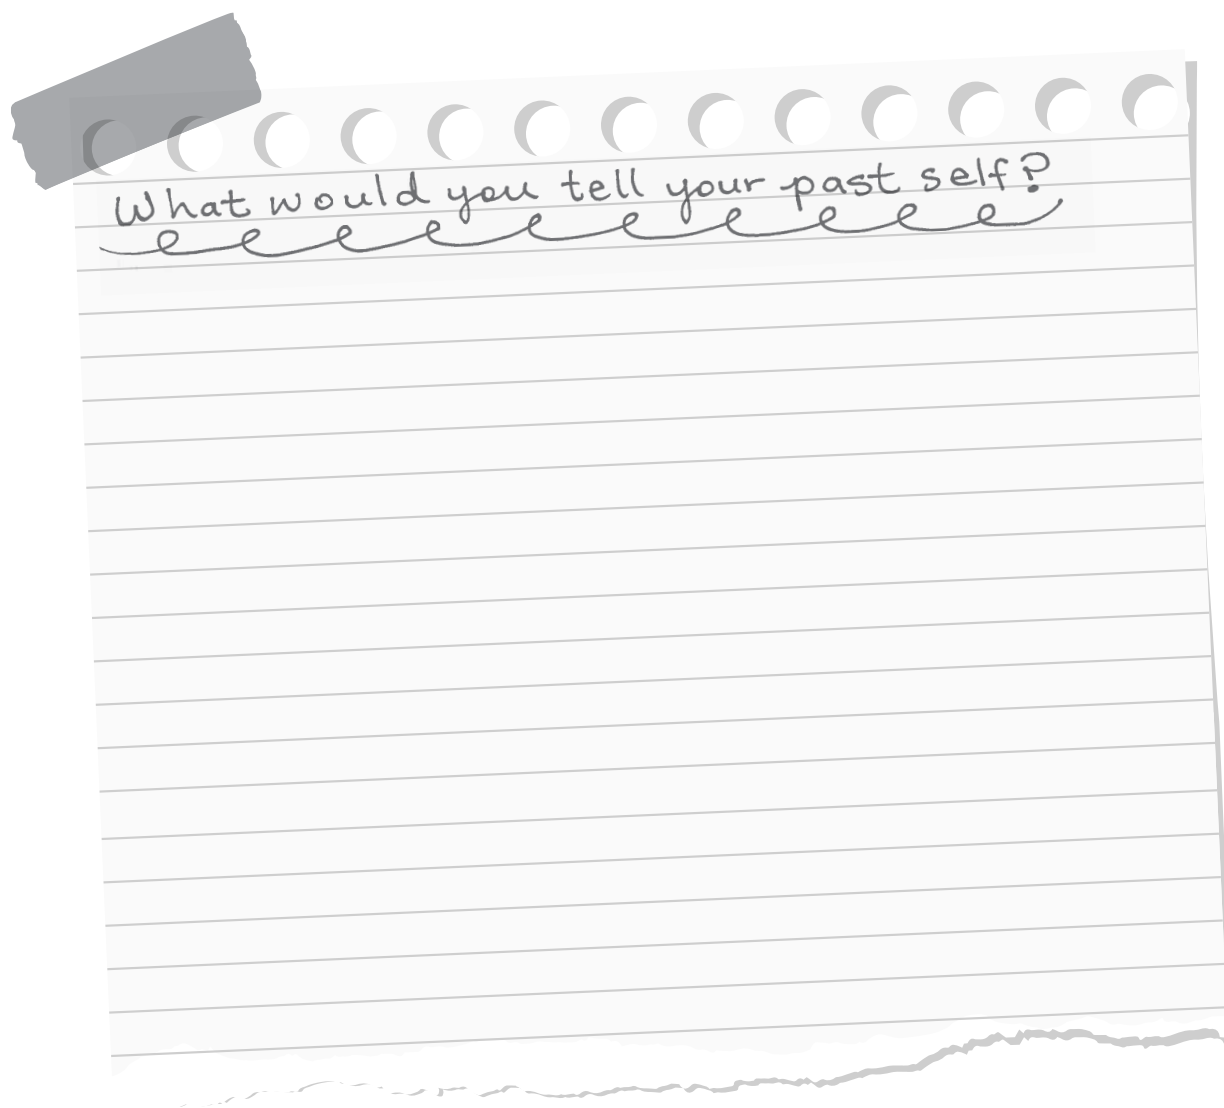 What would you tell your past self?